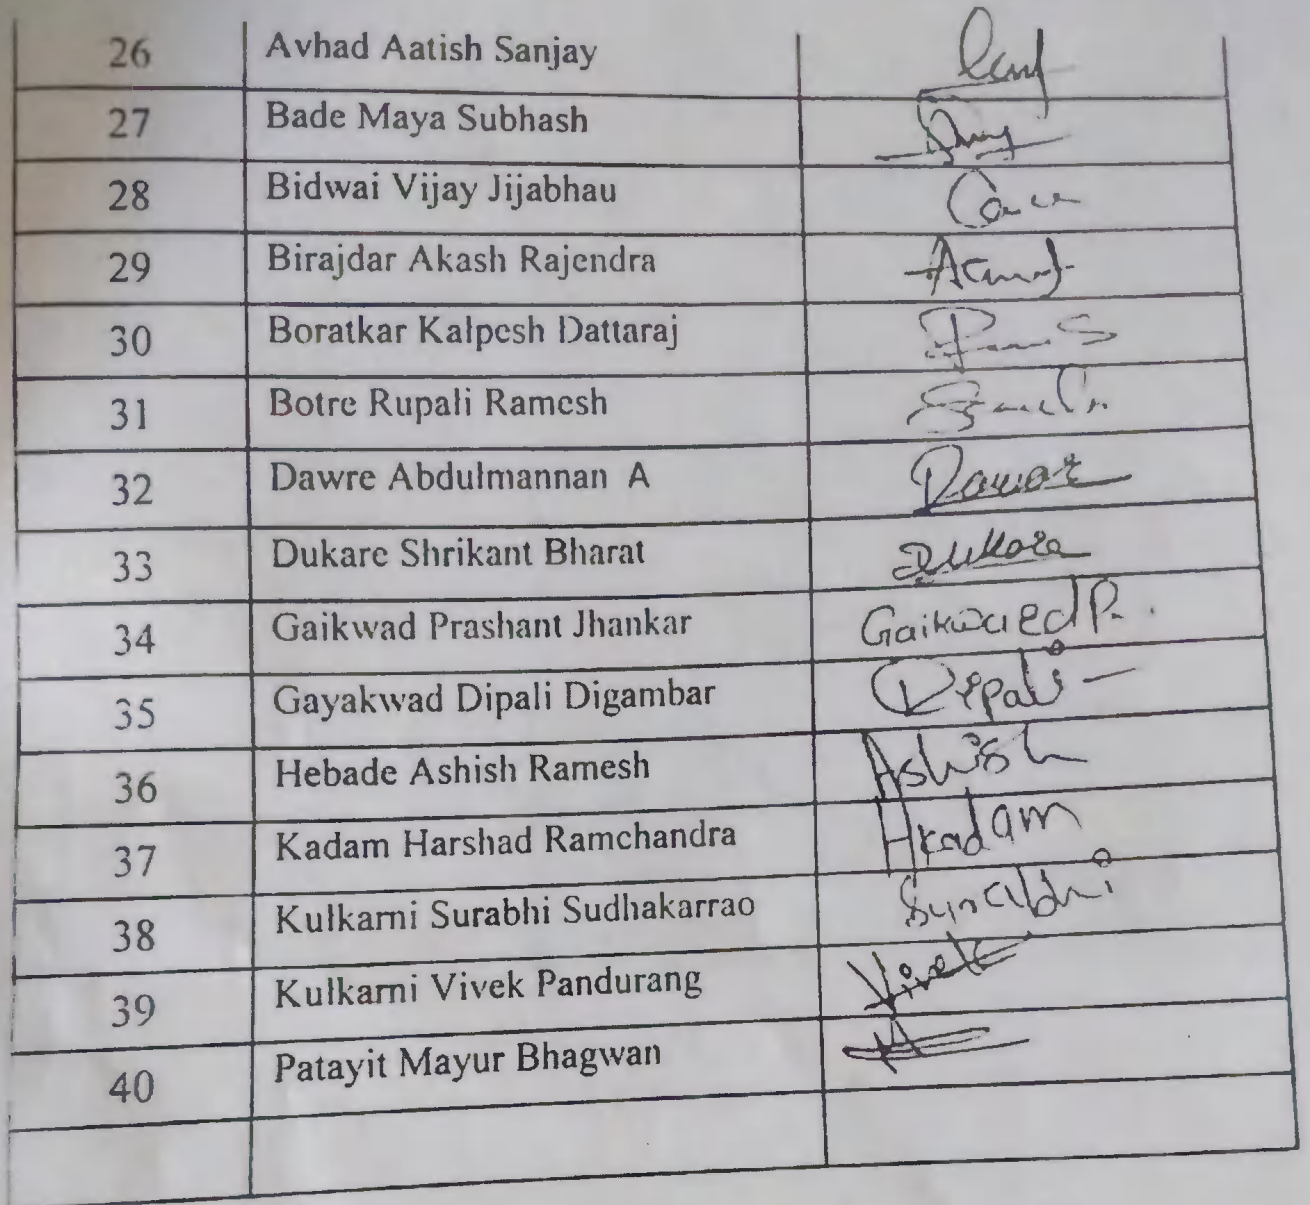 26 Avhad Aatish Sanjay
27 Bade Maya Subhash
28 Bidwai Vijay Jijabhau
29 Birajdar Akash Rajendra
30 Boratkar Kalpesh Dattaraj
31 Botre Rupali Ramesh
32 Dawre Abdulmannan A
33 Dukare Shrikant Bharat Dukare
34 Gaikwad Prashant Jhankar Gaikwaed P.
35 Gayakwad Dipali Digambar Dipali
36 Hebade Ashish Ramesh Ashish
37 Kadam Harshad Ramchandra Hkadam
38 Kulkarni Surabhi Sudhakarrao Surabhi
39 Kulkarni Vivek Pandurang Vivek
40 Patayit Mayur Bhagwan